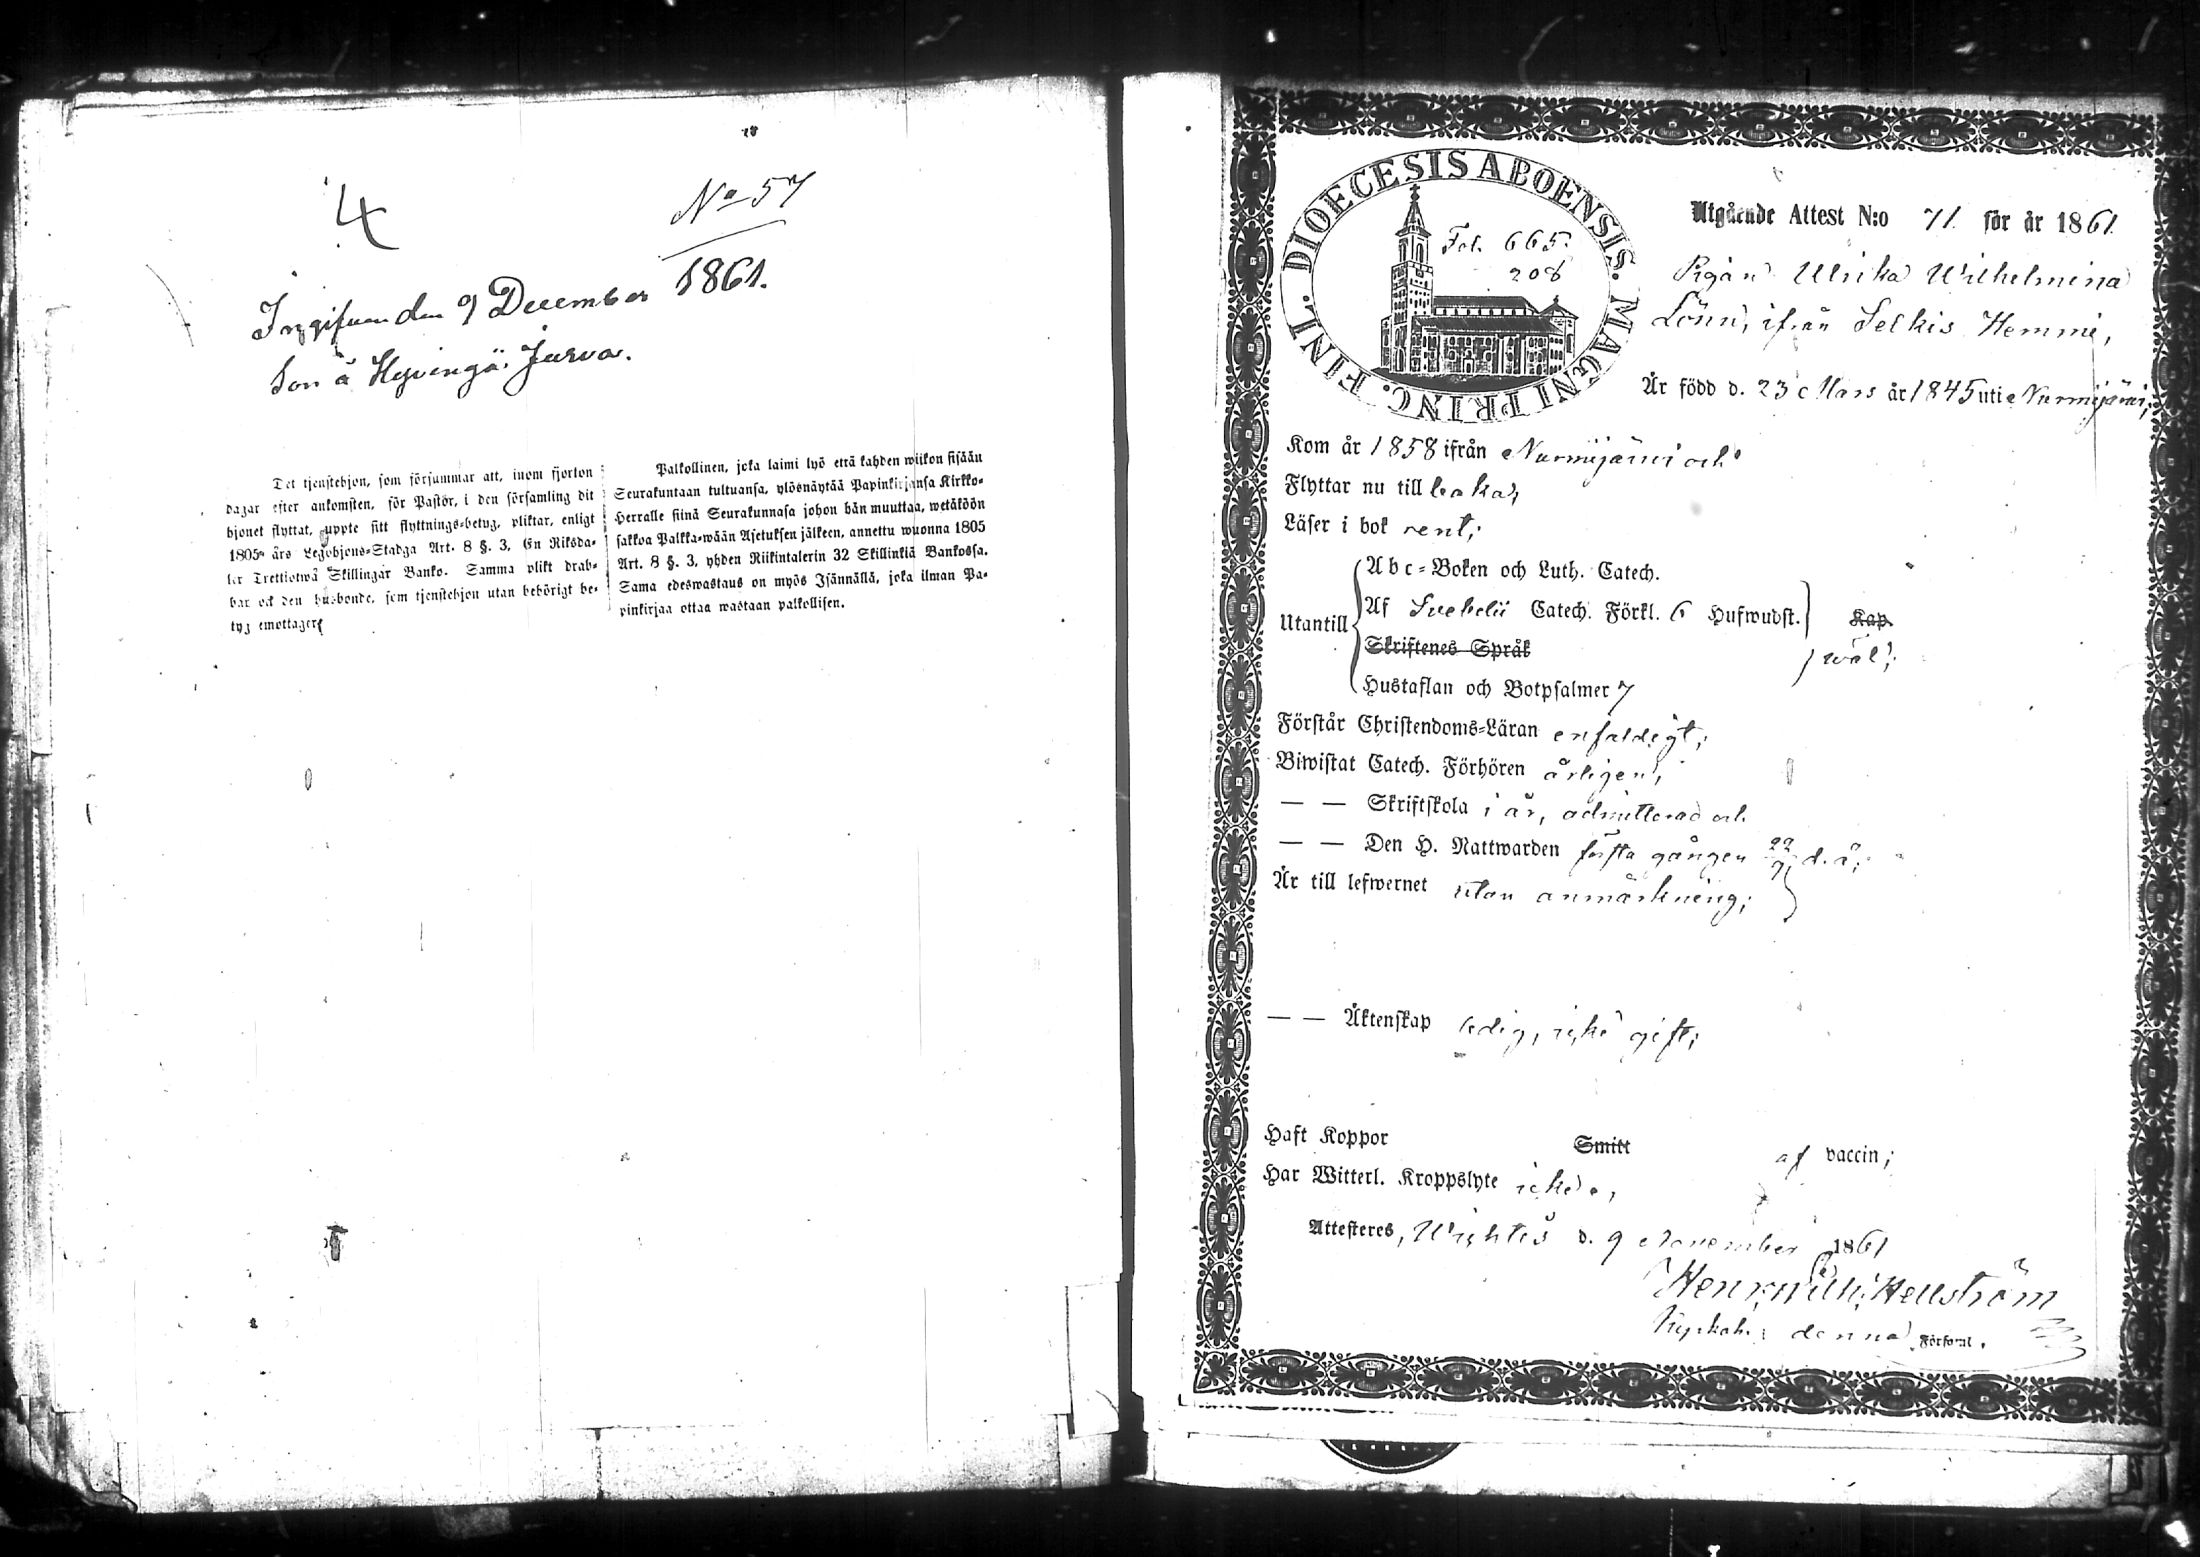 4
No 57
1861.
Ingifven den 9 December
bor å Hyvingä, Jurva.
Det tjenstehjon, som försummar att, inom fjorton
dagar efter ankomsten, för Pastor, i den församling dit
hjonet flyttat, uppte sitt flyttnings-betyg, pliktar, enligt
1805 års Legohjons-Stadga Art. 8 §. 3, En Riksda-
ler Trettiotwå Skillingar Banko. Samma plikt drab-
bar ock den husbonde, som tjenstehjon utan behörigt be-
tyg emottager.
Palkollinen, joka laimi lyö että kahden wiikon sisään
Seurakuntaan tultuansa, ylösnäytää Papinkirjansa Kirkko-
Herralle siinä Seurakunnasa johon hän muuttaa, wetäköön
sakkoa Palkka-wään Asetuksen jälkeen, annettu wuonna 1805
Art. 8 §. 3, yhden Riikintalerin 32 Skillinkiä Bankossa.
Sama edeswastaus on myös Isännällä, joka ilman Pa-
pinkirjaa ottaa wastaan palkollisen.
DIOECESIS ABOENSIS. MAGNI PRINC. FINL.
Fol. 665.
208
Utgående Attest N:o 71 för år 1861
Pigan Ulrika Wilhelmina
Lönn, ifrån Selkis Hemmi,
Är född d. 23 Mars år 1845 uti Nurmijärvi,
Kom år 1858 ifrån Nurmijärvi och
Flyttar nu till baka,
Läser i bok rent;
Abc-Boken och Luth. Catech.
Utantill Af Svebelii Catech. Förkl. 6 Hufwudst. Kap.
Skriftenes Språk wäl;
Hustaflan och Botpsalmer 7
Förstår Christendoms-Läran enfaldigt;
Biwistat Catech. Förhören årligen;
— — Skriftskola i år, admitterad och
— — Den H. Nattwarden första gången 22/9 d. å;
Är till lefwernet utan anmärkning;
— — Äktenskap ledig, icke gift;
Haft Koppor Smitt af vaccin;
Har Witterl. Kroppslyte icke,
Attesteres, Wichtis d. 9 November 1861
Henr. Wilh. Hellström
Kyrkoh. denna Förśaml.